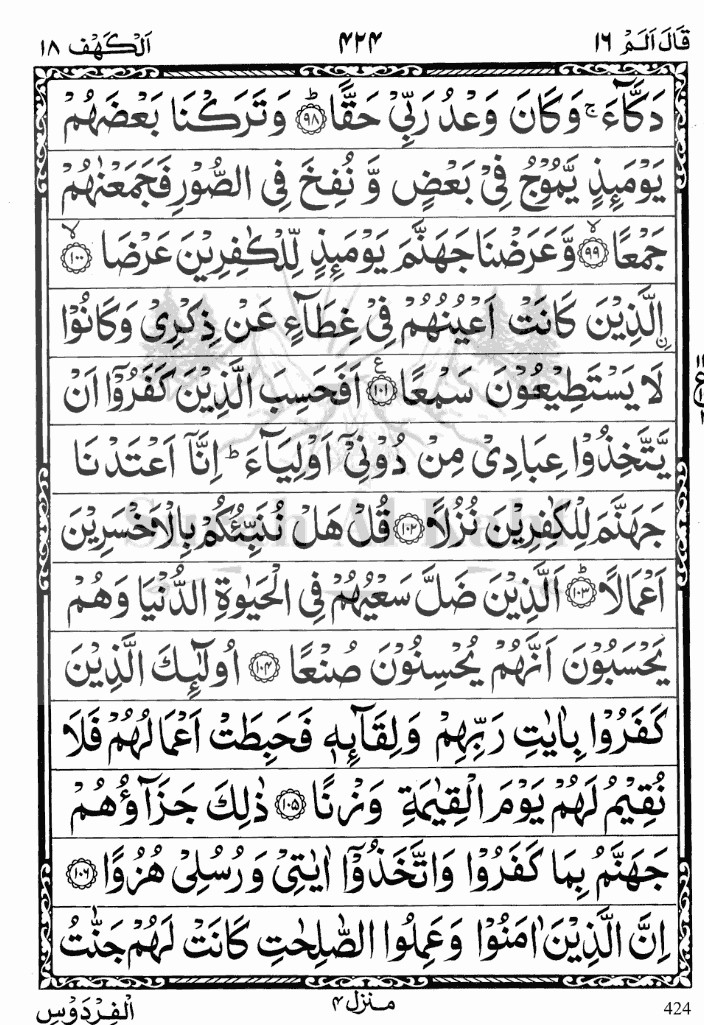 قَالَ اَلَمْ ١٦ ۴۲۴ اَلْكَهْف ١٨
دَكَّآءَ ۚ وَكَانَ وَعْدُ رَبِّىْ حَقًّا ؕ ﴿۹۸﴾ وَتَرَكْنَا بَعْضَهُمْ
يَوْمَئِذٍ يَّمُوْجُ فِىْ بَعْضٍ وَّ نُفِخَ فِى الصُّوْرِ فَجَمَعْنٰهُمْ
جَمْعًا ۙ﴿۹۹﴾ وَّعَرَضْنَا جَهَنَّمَ يَوْمَئِذٍ لِّلْكٰفِرِيْنَ عَرْضَا ۙ﴿۱۰۰﴾
اۨلَّذِيْنَ كَانَتْ اَعْيُنُهُمْ فِىْ غِطَآءٍ عَنْ ذِكْرِىْ وَكَانُوْا
لَا يَسْتَطِيْعُوْنَ سَمْعًا ﴿۱۰۱﴾ ع اَفَحَسِبَ الَّذِيْنَ كَفَرُوْۤا اَنْ
يَّتَّخِذُوْا عِبَادِىْ مِنْ دُوْنِىْۤ اَوْلِيَآءَ ؕ اِنَّاۤ اَعْتَدْنَا
جَهَنَّمَ لِلْكٰفِرِيْنَ نُزُلًا ﴿۱۰۲﴾ قُلْ هَلْ نُنَبِّئُكُمْ بِالْاَخْسَرِيْنَ
اَعْمَالًا ؕ ﴿۱۰۳﴾ اَلَّذِيْنَ ضَلَّ سَعْيُهُمْ فِى الْحَيٰوةِ الدُّنْيَا وَهُمْ
يَحْسَبُوْنَ اَنَّهُمْ يُحْسِنُوْنَ صُنْعًا ﴿۱۰۴﴾ اُولٰٓئِكَ الَّذِيْنَ
كَفَرُوْا بِاٰيٰتِ رَبِّهِمْ وَلِقَآئِهٖ فَحَبِطَتْ اَعْمَالُهُمْ فَلَا
نُقِيْمُ لَهُمْ يَوْمَ الْقِيٰمَةِ وَزْنًا ﴿۱۰۵﴾ ذٰلِكَ جَزَآؤُهُمْ
جَهَنَّمُ بِمَا كَفَرُوْا وَاتَّخَذُوْۤا اٰيٰتِىْ وَرُسُلِىْ هُزُوًا ﴿۱۰۶﴾
اِنَّ الَّذِيْنَ اٰمَنُوْا وَعَمِلُوا الصّٰلِحٰتِ كَانَتْ لَهُمْ جَنّٰتُ
الْفِرْدَوْسِ منزل ۴ 424